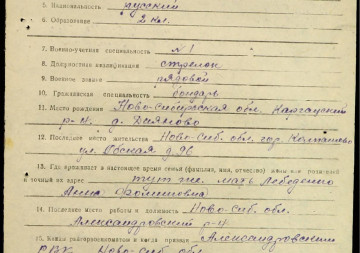 5. Национальность русский
6. Образование 2 кл.
7. Военно-учетная специальность №1
8. Должностная квалификация стрелок
9. Воинское звание рядовой
10. Гражданская специальность бондарь
11. Место рождения Ново-Сибирская обл. Каргасукский
р-н, д.
12. Последнее место жительства Ново-Сиб. обл. гор. Колпашево
ул. Обская д. 96
13. Где проживает в настоящее время семья (фамилия, имя, отчество) жены или родителей
и точный их адрес тут же. мать Лебеденко
Анна
14. Последнее место работы и должность Ново-Сиб. обл.
Александровский р-н
15. Каким райвоенкоматом и когда призван Александровским
РВК Ново-Сиб. обл.